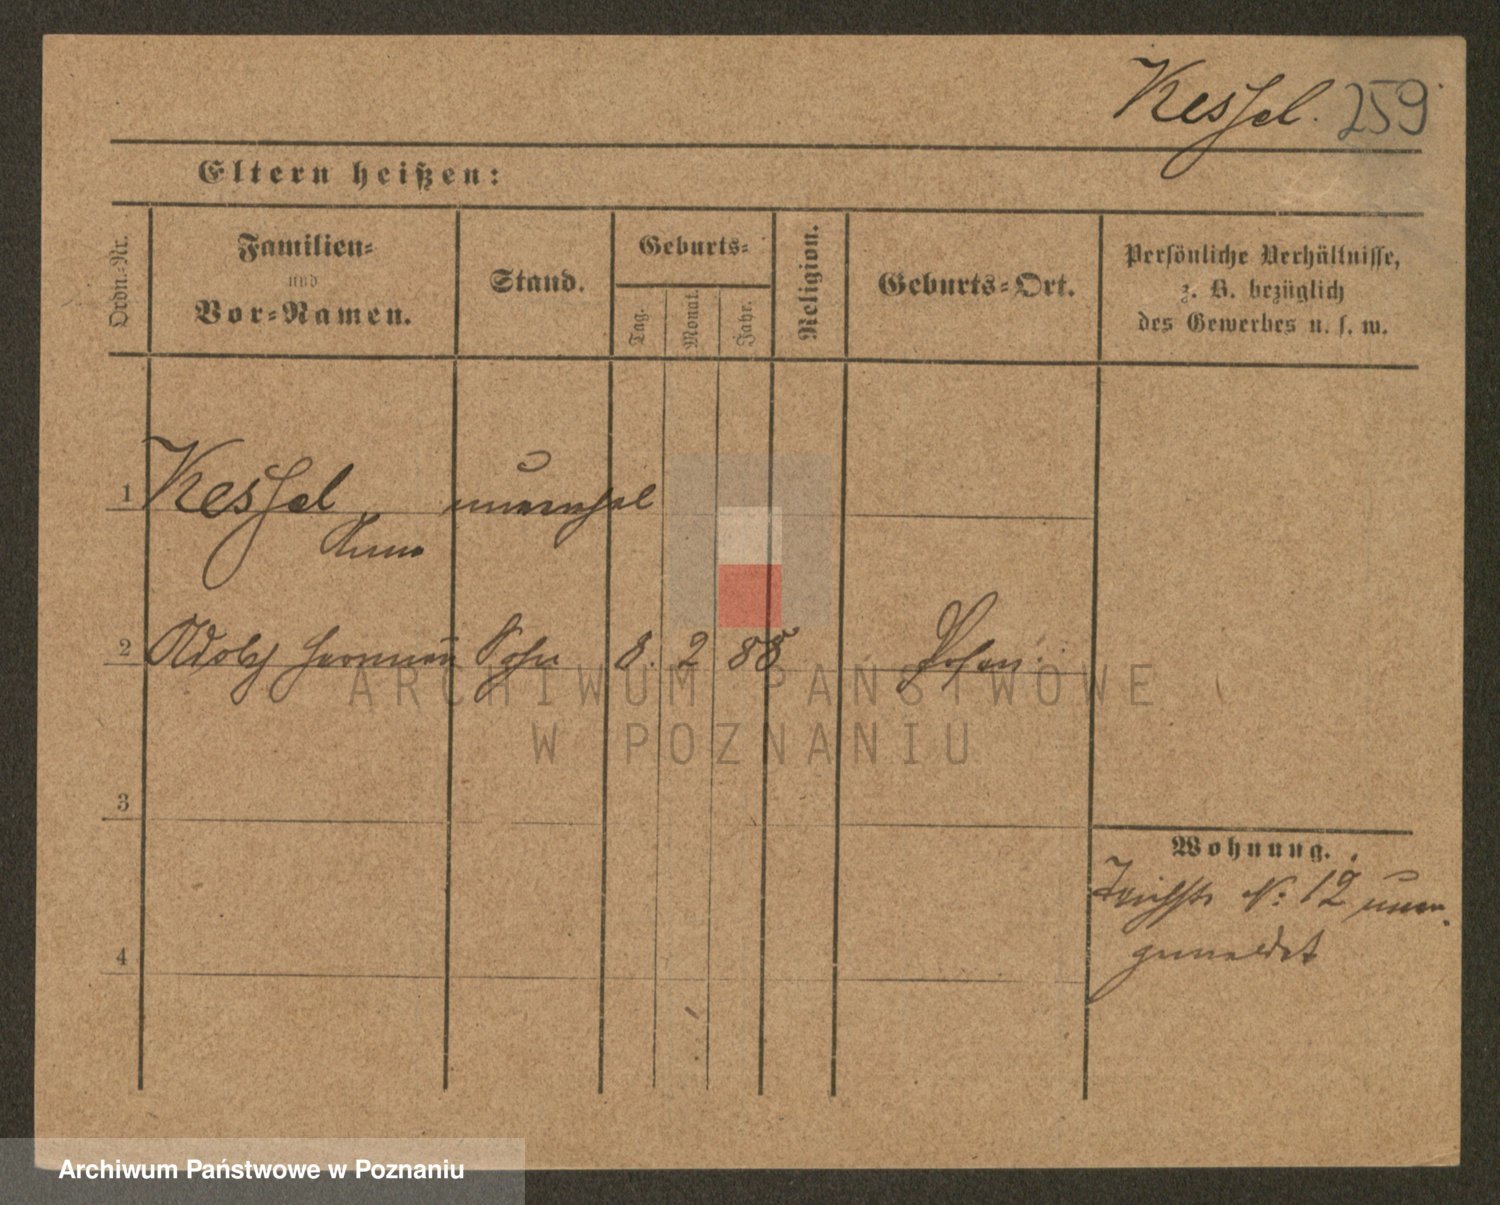 Kessel. 259
Eltern heißen:
Ordn.-Nr.
Familien-
und
Vor-Namen.
Stand.
Geburts-
Tag.
Monat.
Jahr.
Religion.
Geburts-Ort.
Persönliche Verhältnisse,
z. B. bezüglich
des Gewerbes u. s. w.
1 Kessel, unverehel
Anna
2 Adolf Hermann Sohn 8. 2 88 Posen.
3
Wohnung.
N: 12
gemeldet
4
ARCHIWUM PAŃSTWOWE
W POZNANIU
Archiwum Państwowe w Poznaniu